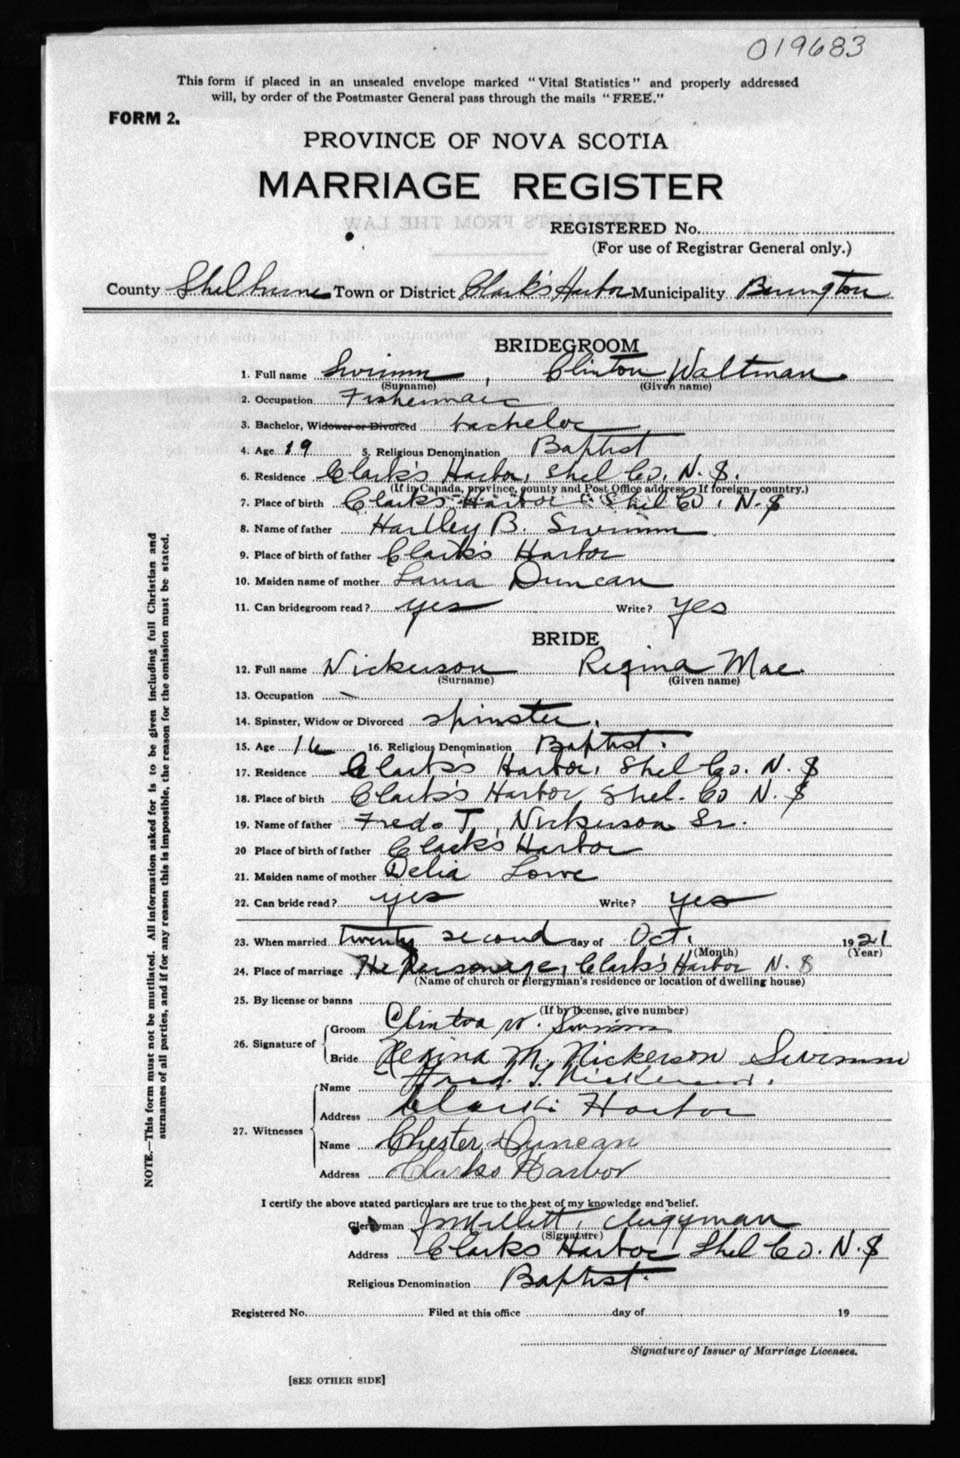 019683
This form if placed in an unsealed envelope marked "Vital Statistics" and properly addressed
will, by order of the Postmaster General pass through the mails "FREE."
FORM 2.
PROVINCE OF NOVA SCOTIA
MARRIAGE REGISTER
REGISTERED No.
(For use of Registrar General only.)
County Shelburne Town or District Clark's Harbor Municipality Barrington
BRIDEGROOM
1. Full name Swimm, Clinton Waltman.
(Surname) (Given name)
2. Occupation Fisherman
3. Bachelor, Widower or Divorced bachelor
4. Age 19 5. Religious Denomination Baptist
6. Residence Clark's Harbor, Shel Co. N.S.
(If in Canada, province, county and Post Office address. If foreign country.)
7. Place of birth Clark's Harbor Shel Co. N.S
8. Name of father Hartley B. Swimm
9. Place of birth of father Clark's Harbor
10. Maiden name of mother Laura Duncan
11. Can bridegroom read? yes Write? yes
BRIDE
12. Full name Nickerson Regina Mae.
(Surname) (Given name)
13. Occupation
14. Spinster, Widow or Divorced spinster.
15. Age 16 16. Religious Denomination Baptist.
17. Residence Clark's Harbor, Shel Co. N.S
18. Place of birth Clark's Harbor Shel. Co N.S
19. Name of father Fred. T. Nickerson Sr.
20 Place of birth of father Clark's Harbor
21. Maiden name of mother Delia Lowe
22. Can bride read? yes Write? yes
23. When married Twenty second day of Oct. 1921
(Month) (Year)
24. Place of marriage The Personage, Clark's Harbor N.S
(Name of church or clergyman's residence or location of dwelling house)
25. By license or banns
(If by license, give number)
26. Signature of
Groom Clinton W. Swimm
Bride Regina M. Nickerson Swimm
27. Witnesses
Name Fred. T. Nickerson.
Address Clark's Harbor
Name Chester Duncan
Address Clarks Harbor
I certify the above stated particulars are true to the best of my knowledge and belief.
Clergyman Millett, clergyman
(Signature)
Address Clarks Harbor Shel Co. N.S
Religious Denomination Baptist.
Registered No. Filed at this office day of 19
Signature of Issuer of Marriage Licenses.
[SEE OTHER SIDE]
NOTE.—This form must not be mutilated. All information asked for is to be given including full Christian and
surnames of all parties, and if for any reason this is impossible, the reason for the omission must be stated.